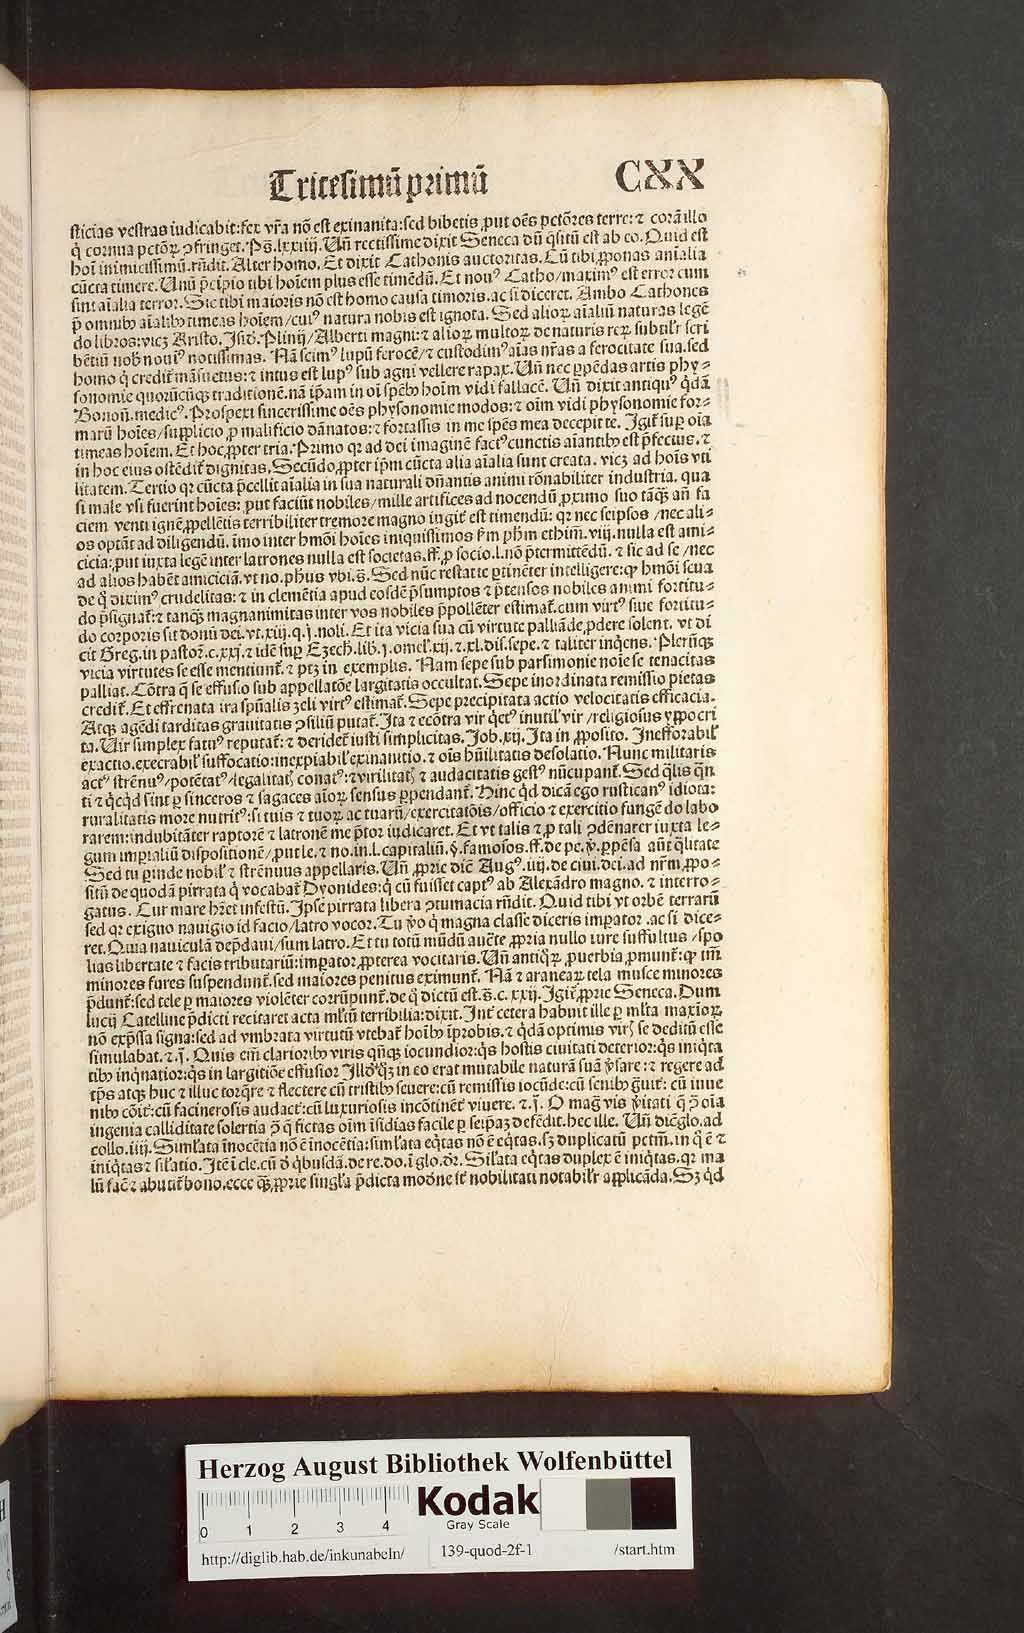 Tricesimū primū CXX
sticias vestras iudicabit: fex vr̄a nō est exinanita: sed bibetis ꝓut oēs pctōres terre: ⁊ corā illo
q̇ cornua pctōꝝ ꝯfringet. Ps̄. lxxiiij. Uñ rectissime dixit Seneca dū q̄situ est ab eo. Quid est
hoī inimicissimū. rn̄dit. Alter homo. Et dixit Cathonis auctoritas. Cū tibi ꝓponas aīalia
cūcta timere. Unū p̄cipio tibi hoīem plus esse timēdū. Et nouꝰ Catho/ maximꝰ est error cum
sint aīalia terror. Sic tibi maioris nō est homo causa timoris. ac si diceret. Ambo Cathones
p̄ omnibꝰ aīalibꝰ timeas hoīem/ cuiꝰ natura nobis est ignota. Sed alioꝝ aīaliū naturas legē
do libros: vicꝫ Aristo. Isid̄. Plinij/ Alberti magni: ⁊ alioꝝ multoꝝ de naturis reꝝ subtilr̄ scri
bētiū nob̄ nouimꝰ notissimas. Nā scimꝰ lupū ferocē/ ⁊ custodimꝰ aīas nr̄as a ferocitate sua. sed
homo q̇ credit̄ māsuetus: ⁊ intus est lupꝰ sub agni vellere rapax. Uñ nec ꝑpēdas artis phy⸗
sonomie quorūcūqꝫ traditionē. nā ip̄am in oī spēbꝰ hoīm vidi fallacē. Uñ dixit antiquꝰ q̇dā
Bonoñ. medicꝰ. Prospexi sincerissime oēs physonomie modos: ⁊ oīm vidi physonomie for⸗
marū hoīes/ supplicio ꝓ malificio dānatos: ⁊ fortassis in me spēs mea decepit te. Igit̄ suꝑ oīa
timeas hoīem. Et hoc ꝓpter tria. Primo qꝛ ad dei imaginē factꝰ cunctis aīantibꝰ est p̄fectus. ⁊
in hoc eius ostēdit̄ dignitas. Secūdo ꝓpter ip̄m cūcta alia aīalia sunt creata. vicꝫ ad hoīs vti
litatem. Tertio qꝛ cūcta p̄cellit aīalia in sua naturali dn̄antis animi rōnabiliter industria. qua
si male vsi fuerint hoīes: ꝓut faciūt nobiles/ mille artifices ad nocendū ꝓximo suo tāqꝫ añ fa
ciem venti ignē ꝓpellētis terribiliter tremore magno iugit̄ est timendū: qꝛ nec seipsos /nec ali⸗
os optāt ad diligendū. īmo inter hmōi hoīes iniquissimos fm̄ ph̄m ethim̄. viij. nulla est ami⸗
cicia: ꝓut iuxta legē inter latrones nulla est societas. ff. ꝓ socio. l. nō p̄termittēdū. ⁊ sic ad se /nec
ad alios habēt amiciciā. vt no. ph̄us vbi. s̄. Sed nūc restat te ꝑtinēter intelligere: ꝙ hmōi seua
de q̇ diximꝰ crudelitas: ⁊ in clemētia apud eosdē p̄sumptos ⁊ p̄tensos nobiles animi fortitu⸗
do p̄signat̄: ⁊ tanqꝫ magnanimitas inter vos nobiles p̄pollēter estimat̄. cum virtꝰ siue fortitu⸗
do corporis sit donū dei. vt. xiij. q. j. noli. Et ita vicia sua cū virtute palliāde ꝓdere solent. vt di
cit Greg. in pastor̄. c. xxj. ⁊ idē suꝑ Ezech. lib. j. omel̄. xij. ⁊. xl. dis̄. sepe. ⁊ taliter inq̇ens. Plerūqꝫ
vicia virtutes se esse mentiunt̄. ⁊ ptꝫ in exemplis. Nam sepe sub parsimonie noīe se tenacitas
palliat. Cōtra q̄ se effusio sub appellatōe largitatis occultat. Sepe inordinata remissio pietas
credit̄. Et effrenata ira spūalis zeli virtꝰ estimat̄. Sepe precipitata actio velocitatis efficacia.
Atqꝫ agēdi tarditas grauitatis ꝯsiliū putat̄. Ita ⁊ ecōtra vir q̇etꝰ inutil̄ vir /religiosus ypocri
ta. Uir simplex fatuꝰ reputat̄: ⁊ deridet̄ iusti simplicitas. Job. xij. Ita in ꝓposito. Inefforabil̄
exactio. execrabil̄ suffocatio: inexpiabil̄ exinanitio. ⁊ oīs hn̄ilitatis desolatio. Nunc militaris
actꝰ strēnuꝰ/ potētatꝰ/ legalitatꝭ conatꝰ: ⁊ virilitatꝭ ⁊ audacitatis gestꝰ nūcupant̄. Sed q̄lis q̄n
ti ⁊ q̇cq̇d sint ꝑ sinceros ⁊ sagaces aīoꝝ sensus ꝑpendant̄. Hinc q̇d dicā ego rusticanꝰ idiota:
ruralitatis more nutritꝰ: si tuis ⁊ tuoꝝ ac tuarū/ exercitatōis/ officio ⁊ exercitio fungē do labo
rarem: indubitāter raptorē ⁊ latronē me p̄tor iudicaret. Et vt talis ⁊ ꝓ tali ꝯdēnarer iuxta le⸗
gum imꝑialiū dispositionē/ ꝓut le. ⁊ no. in. l. capitaliū. §. famosos. ff. de pe. ꝟ. ꝑpēsa aūt q̄litate
Sed tu ꝑinde nobil̄ ⁊ strēnuus appellaris. Uñ ꝓprie diē Augꝰ. iiij. de ciui. dei. ad nr̄m ꝓpo⸗
sitū de quodā pirrata q̇ vocabat̄ Dyonides: q̇ cū fuisset captꝰ ab Alexādro magno. ⁊ interro⸗
gatus. Cur mare hr̄et infestū. Ipse pirrata libera ꝯtumacia rn̄dit. Quid tibi vt orbē terrarū
sed qꝛ exiguo nauigio id facio/ latro vocor. Tu ꝟo q̇ magna classe diceris imꝑator. ac si dice⸗
ret. Quia nauiculā dep̄daui/ sum latro. Et tu totū mūdū auēte ꝓpria nullo iure suffultus /spo
lias libertate ⁊ facis tributariū: imꝑator ꝓpterea vocitaris. Uñ antiq̇ꝝ ꝓuerbia ꝓmunt̄: ꝙ tm̄
minores fures suspendunt̄. sed maiores penitus eximunt̄. Nā ⁊ aranearꝝ tela musce minores
p̄dunt̄: sed tele ꝑ maiores violēter corrūpunt̄. de q̇ dictū est. s̄. c. xxij. Igit̄ ꝓprie Seneca. Dum
lucij Catelline p̄dicti recitaret acta ml̄tū terribilia: dixit. Int̄ cetera habuit ille ꝑ ml̄ta maxioꝝ
nō exp̄ssa signa: sed ad vmbrata virtutū vtebat̄ hoībꝰ īprobis. ⁊ q̇dā optimus virꝭ se deditū esse
simulabat. ⁊. j̄. Quis em̄ clarioribꝰ viris qn̄qꝫ iocundior: q̇s hostis ciuitati deterior: q̇s iniq̇ta
tibꝰ inq̇natior: q̇s in largitiōe effusior Illd̄ꝙꝫ in eo erat mutabile naturā suā ꝟsare: ⁊ regere ad
tp̄s atqꝫ huc ⁊ illuc torq̄re ⁊ flectere cū tristibꝰ seuere: cū remissis iocūde: cū senibꝰ g̈uit̄: cū iuue
nibꝰ cōit̄: cū facinerosis audact̄: cū luxuriosis incōtinēt̄ viuere. ⁊. j̄. O mag̈ vis ꝟitati q̄ p̄ oīa
ingenia calliditate solertia p̄ q̄ fictas oīm īsidias facile ꝑ seip̄aꝫ defēdit. hec ille. Uñ diēglo. ad
collo. iiij. Siml̄ata īnocētia nō ē inocētia: siml̄ata eq̇tas nō ē eq̇tas. sꝫ duplicatū pctm̄. in q̇ ē ⁊
iniq̇tas ⁊ sil̄atio. Itē ī cle. cū d̄ q̇busdā. de re. do. ī glo. d̄ꝛ. Sil̄ata eq̇tas duplex ē iniq̇tas. qꝛ ma
lū fac̄ ⁊ abutit̄ bono. ecce qꝫ ꝓprie singl̄a p̄dicta mod̄ne st̄ nobilitati notabilr̄ applicāda. Sꝫ q̇d
Herzog August Bibliothek Wolfenbüttel
0 1 2 3 4
Kodak
Gray Scale
http://diglib.hab.de/inkunabeln/ 139-quod-2f-1 /start.htm